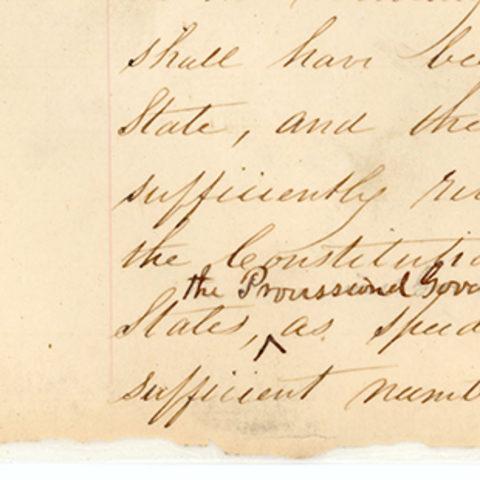 shall have be
State, and the
sufficiently re
the Constitutio
the Provissional Gove
States, ^ as speed
sufficient numb